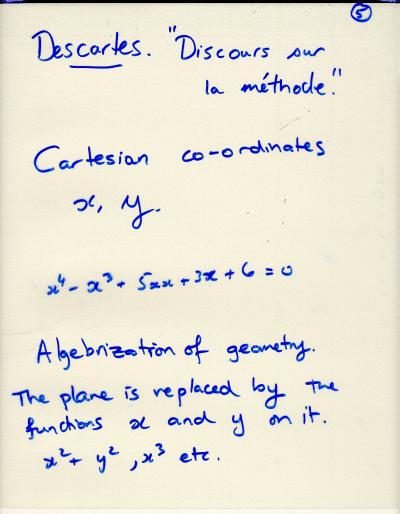 5
Descartes. "Discours sur
la méthode."
Cartesian co-ordinates
x, y.
x⁴ - x³ + 5xx + 3x + 6 = 0
Algebrization of geometry.
The plane is replaced by the
functions x and y on it.
x² + y², x³ etc.